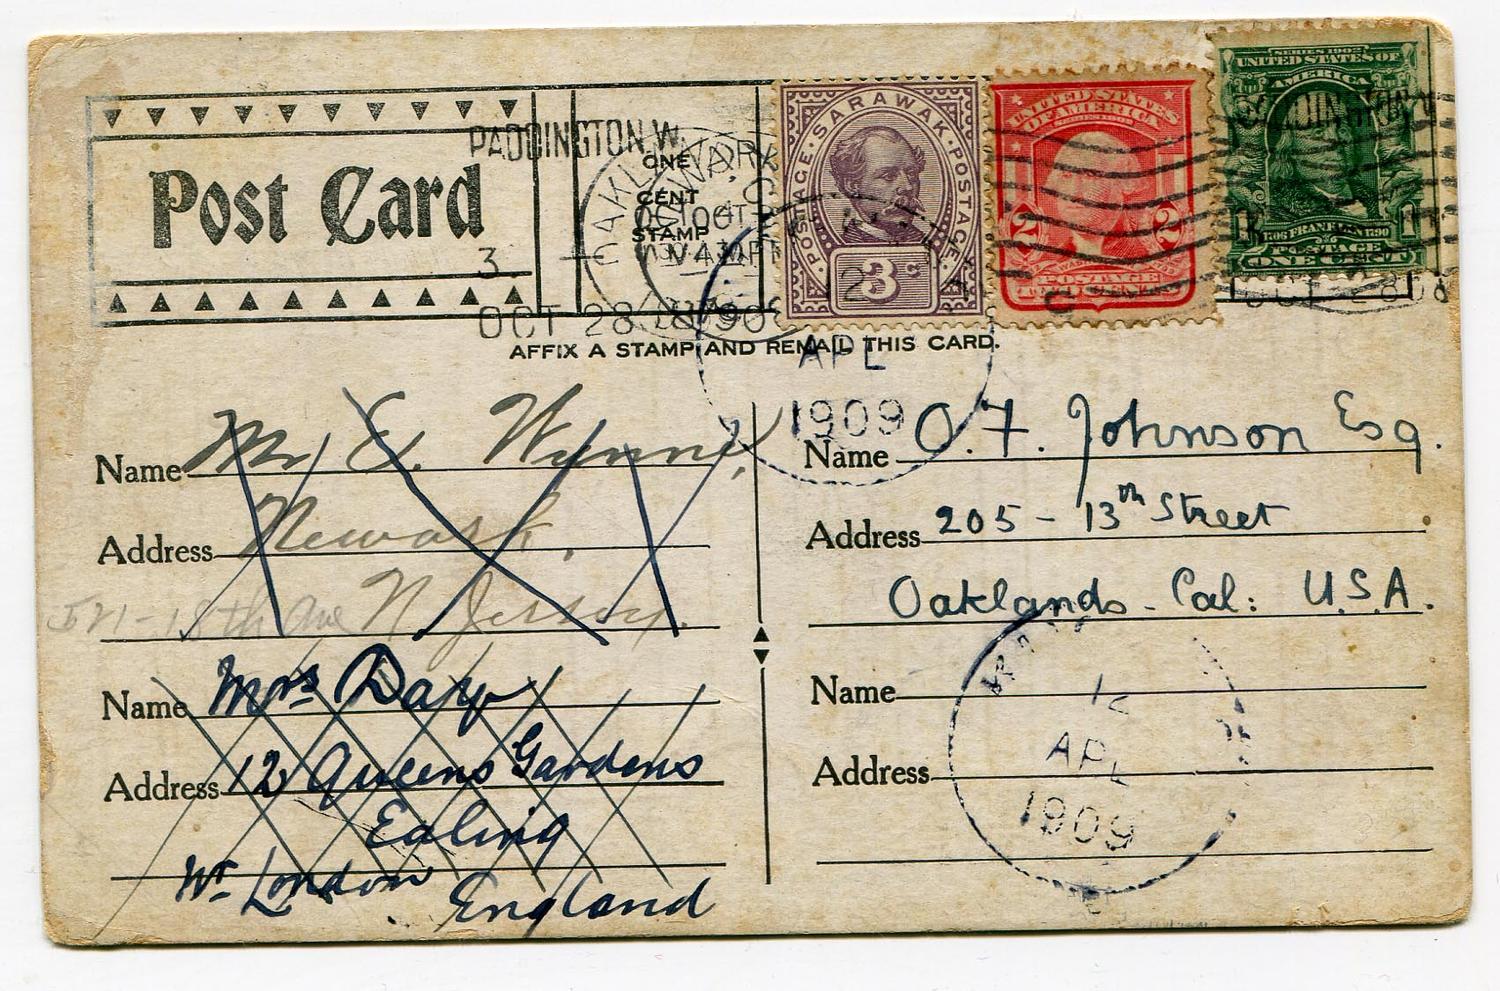 Post Card
PADDINGTON W.
3
OCT 28 1908
ONE
CENT
STAMP
SARAWAK
POSTAGE POSTAGE
3c
SERIES 1902
UNITED STATES
OF AMERICA
2 2
POSTAGE
UNITED STATES OF
AMERICA
1706 FRANKLIN 1790
POSTAGE
ONE CENT
PADDINGTON W.
OCT 28 08
AFFIX A STAMP AND REMAIL THIS CARD.
12
APL
1909
Name Mr E. Wynne,
Address Newark,
521-18th Ave N Jersey.
Name Mrs
Address 12 Queens Gardens
Ealing
W. London England
Name O. F. Johnson Esq.
Address 205 - 13th Street
Oaklands - Cal: U.S.A.
Name
Address
12
APL
1909